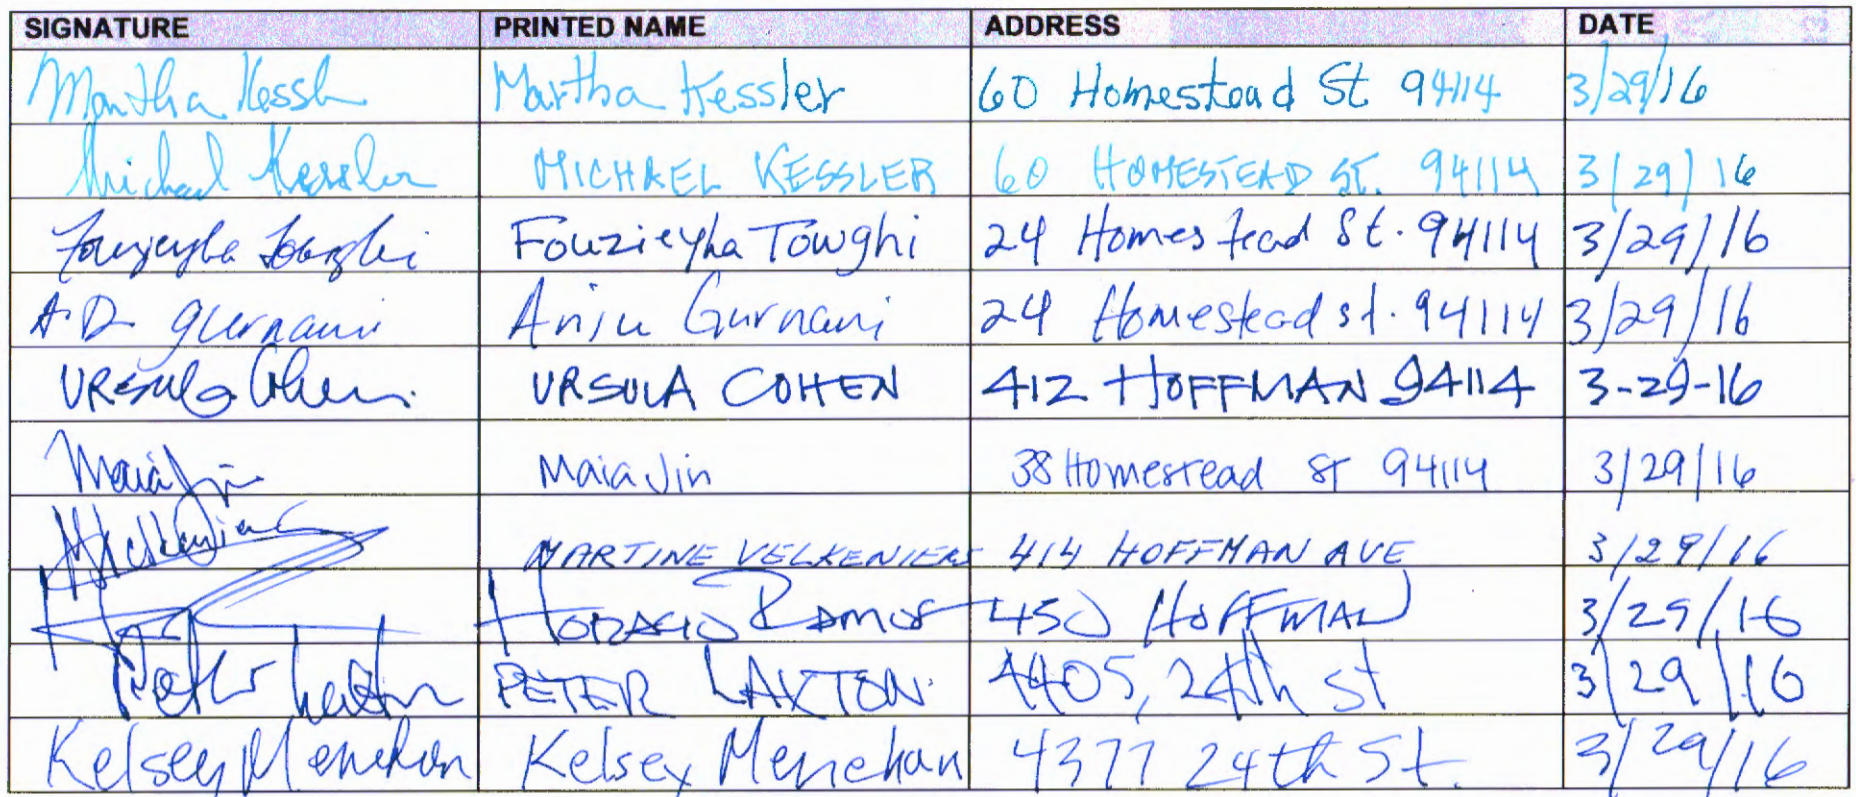 SIGNATURE PRINTED NAME ADDRESS DATE
Martha Kessler Martha Kessler 60 Homestead St 94114 3/29/16
Michael Kessler MICHAEL KESSLER 60 HOMESTEAD ST. 94114 3/29/16
Fouzieyha Towghi Fouzieyha Towghi 24 Homestead St. 94114 3/29/16
A.D. Gurnani Anju Gurnani 24 Homestead st. 94114 3/29/16
URSULA Cohen URSULA COHEN 412 HOFFMAN 94114 3-29-16
Maia Jin Maia Jin 38 Homestead St 94114 3/29/16
MARTINE VELKENIERS 414 HOFFMAN AVE 3/29/16
HORACIO RAMOS 450 HOFFMAN 3/29/16
Peter Laxton PETER LAXTON. 4405, 24th St 3/29/16
Kelsey Menehan Kelsey Menehan 4377 24th St. 3/29/16